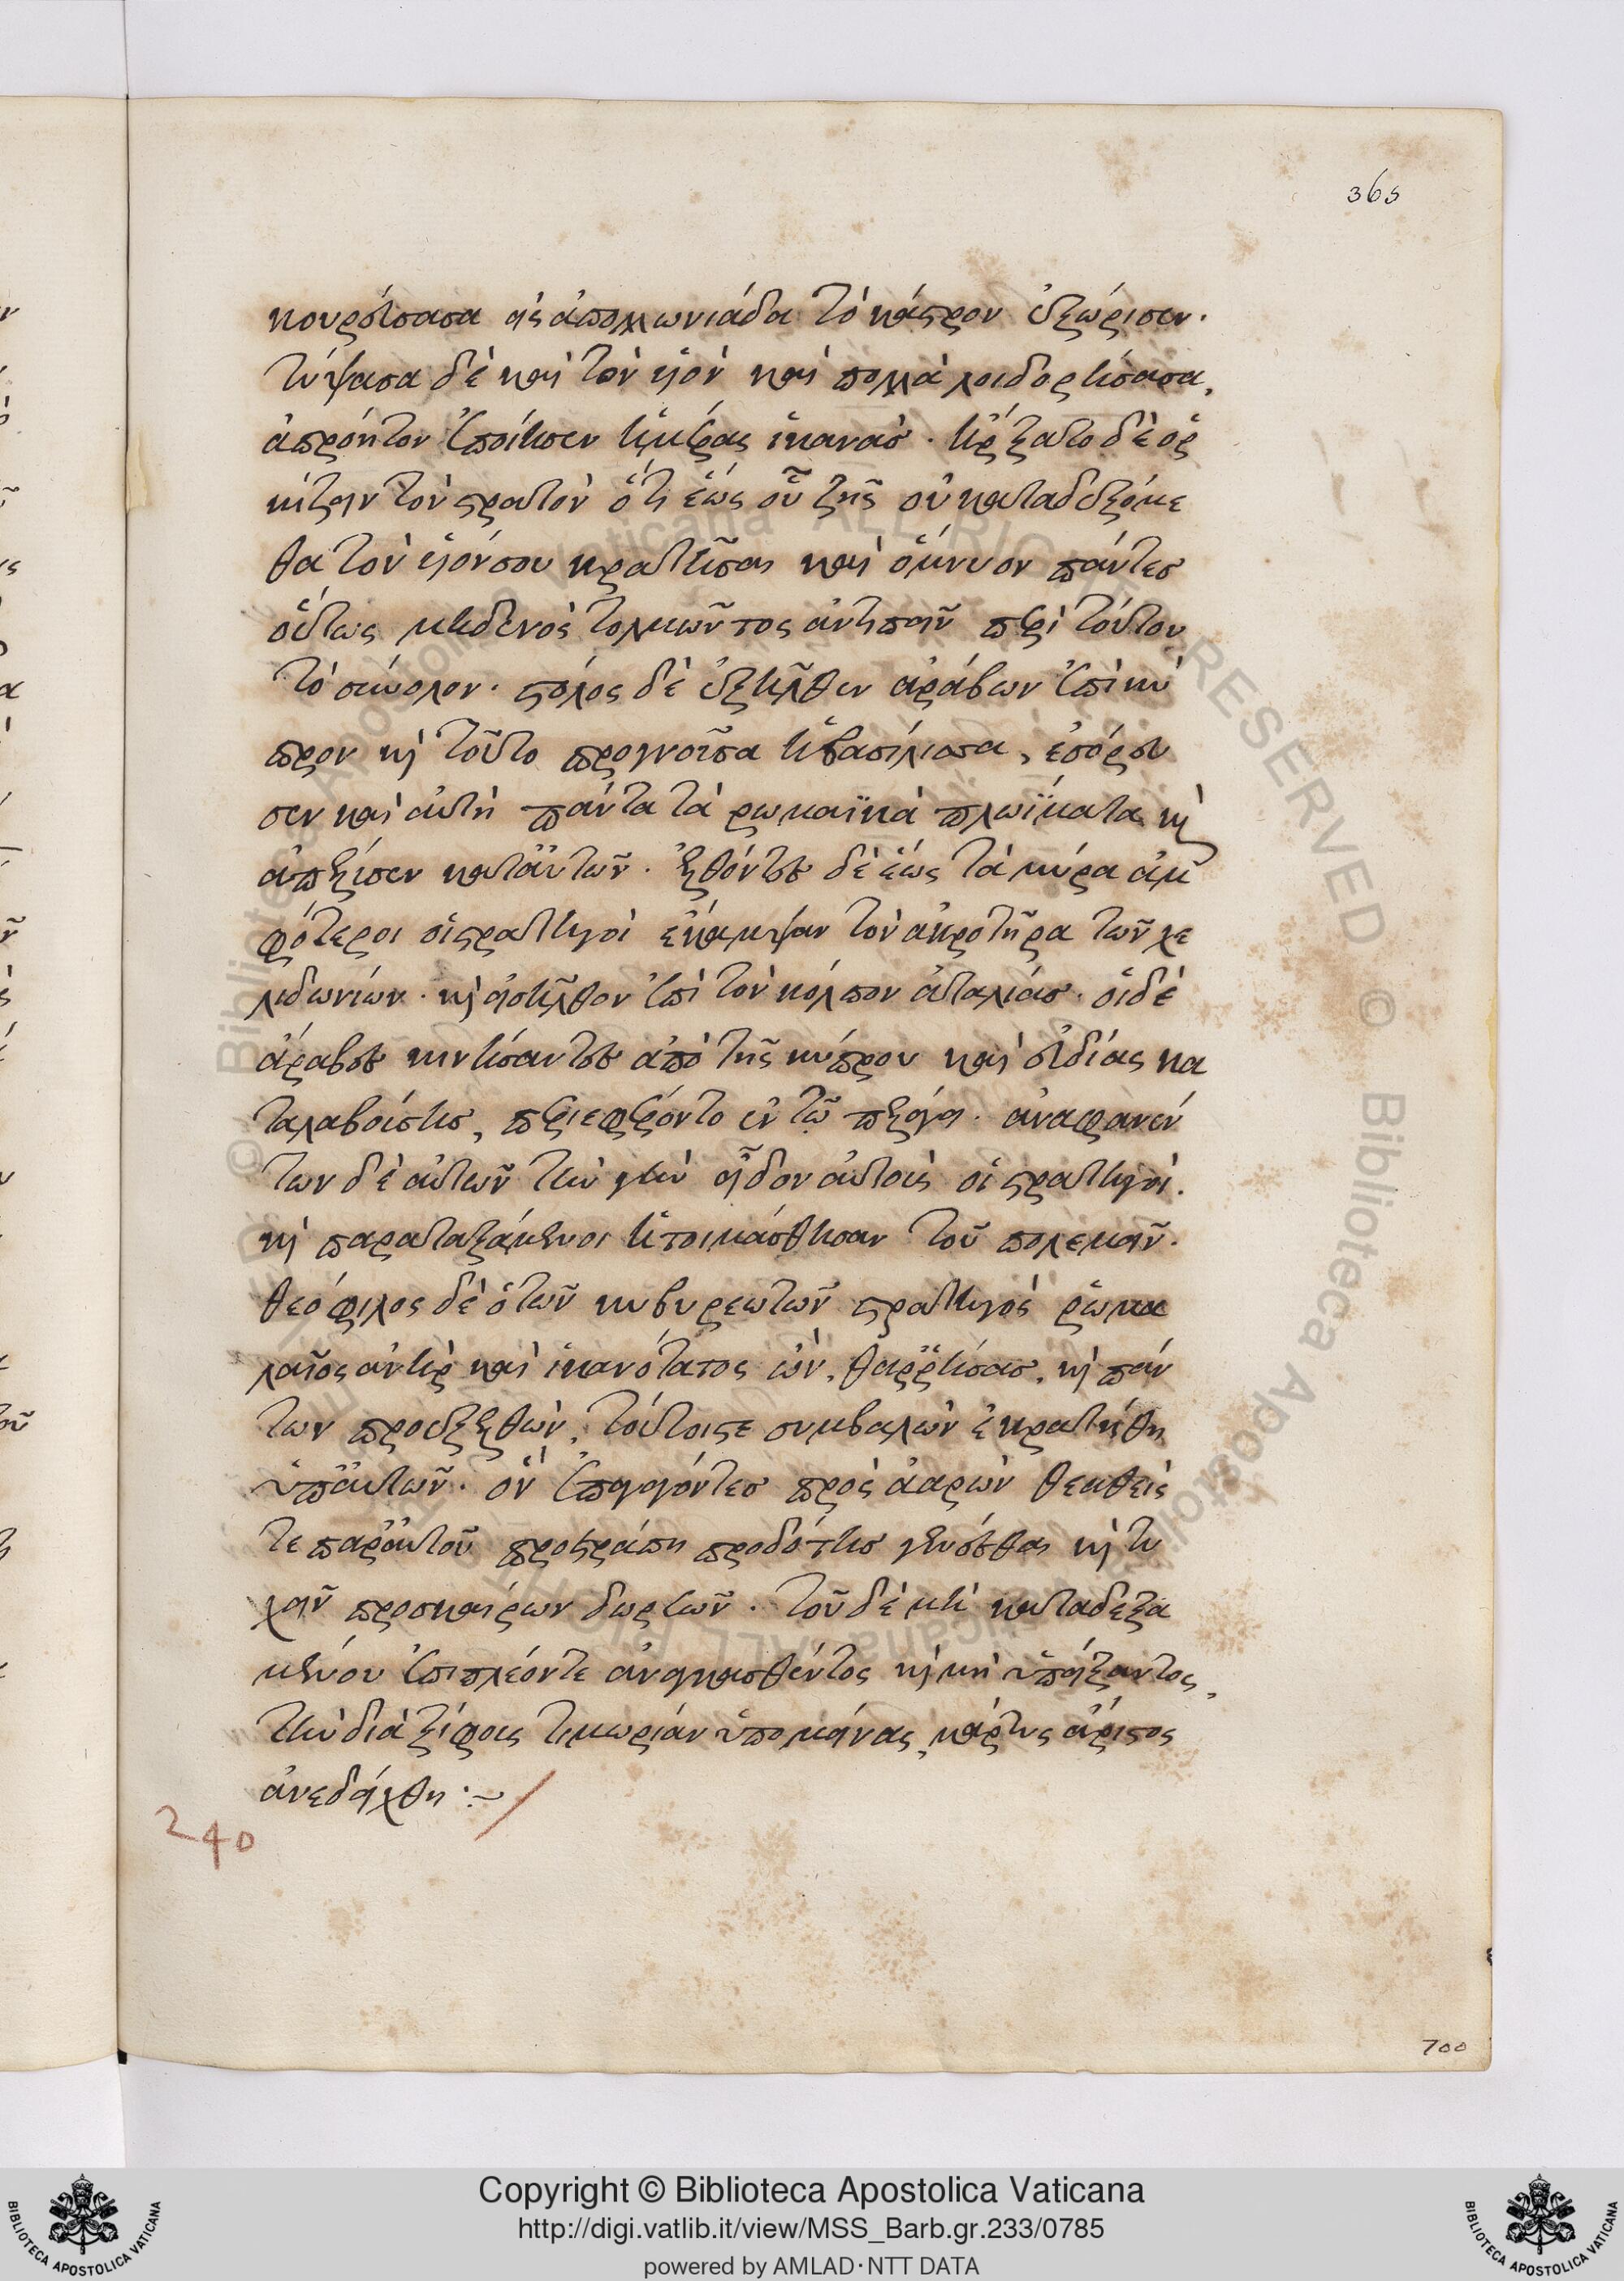 365
κουρεύσασα εἰς ἀπολλωνιάδα τὸ κάστρον ἐξώρισεν.
τύψασα δὲ καὶ τὸν υἱὸν καὶ πολλὰ λοιδορήσασα,
ἀπρόητον ἐποίησεν ἡμέρας ἱκανάσ. ἤρξατο δὲ ὁρ
κίζειν τὸν στρατὸν ὅτι ἕως οὗ ζῆς οὐ καταδεξόμε
θα τὸν υἱόν σου κρατῆσαι καὶ ὄμνυον πάντεσ
οὕτως μηδενὸς τολμῶντος ἀντιπεῖν περὶ τούτου
τὸ σύνολον. στόλος δὲ ἐξῆλθεν ἀράβων ἐπὶ κύ
προν καὶ τοῦτο προγνοῦσα ἡ βασίλισσα, ἐσόρευ
σεν καὶ αὐτὴ πάντα τὰ ρωμαϊκὰ πλωΐματα καὶ
ἀπέλυσεν κατ' αὐτῶν. ἐλθόντες δὲ ἕως τὰ μύρα ἀμ
φότεροι οἱ στρατηγοὶ ἔκαμψαν τὸν ἀκροτῆρα τῶν χε
λιδωνίων. καὶ εἰσῆλθον ἐπὶ τὸν κόλπον ἀταλίασ. οἱ δὲ
ἄραβες κινήσαντες ἀπὸ τῆς κύπρου καὶ εὐδίας κα
ταλαβούσησ, περιεφέροντο ἐν τῷ πελάγει. ἀναφανέν
των δὲ αὐτῶν τὴν γῆν εἶδον αὐτοὺς οἱ στρατηγοί.
καὶ παραταξάμενοι ἡτοιμάσθησαν τοῦ πολεμεῖν.
θεόφιλος δὲ ὁ τῶν κυβυρεωτῶν στρατηγὸς ρωμα
λαῖος ἀνὴρ καὶ ἱκανότατος ὢν, θαρρήσασ, καὶ πάν
των προεξελθὼν, τούτοις συμβαλὼν ἐκρατήθη
ὑπ' αὐτῶν. ὃν ἐπαγαγόντεσ πρὸς ἀαρὼν θεαθεὶς
τε παρ' αὐτοῦ προετράπη προδότησ γενέσθαι καὶ τυ
χεῖν προσκαίρων δωρεῶν. τοῦ δὲ μὴ καταδεξα
μένου ἐπιπλέοντε ἀναγκασθέντος καὶ μὴ ὑπείξαντος,
τὴν διὰ ξίφους τιμωρίαν ὑπομείνας, μάρτυς ἄριστος
ἀνεδείχθη :~
240
700
Copyright © Biblioteca Apostolica Vaticana
http://digi.vatlib.it/view/MSS_Barb.gr.233/0785
powered by AMLAD·NTT DATA